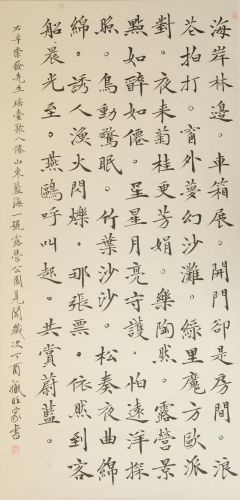 海岸林邊。車箱展。開門卻是房間。浪
花拍打。窗外夢幻沙灘。綠里魔方歐派
對。夜來菊桂更芳娟。樂陶然。露營景
點如醉如僊。星星月亮守護。怕遠洋探
照。鳥動驚眠。竹葉沙沙。松奏夜曲綿
綿。誘人漁火閃爍。那張票。依然到客
船。晨光至。燕鷗呼叫起。共賞蔚藍。
右辛崇發先生瑤臺歌八僊山東藍海一號露營公園見聞歲次丁酉臧旺家書